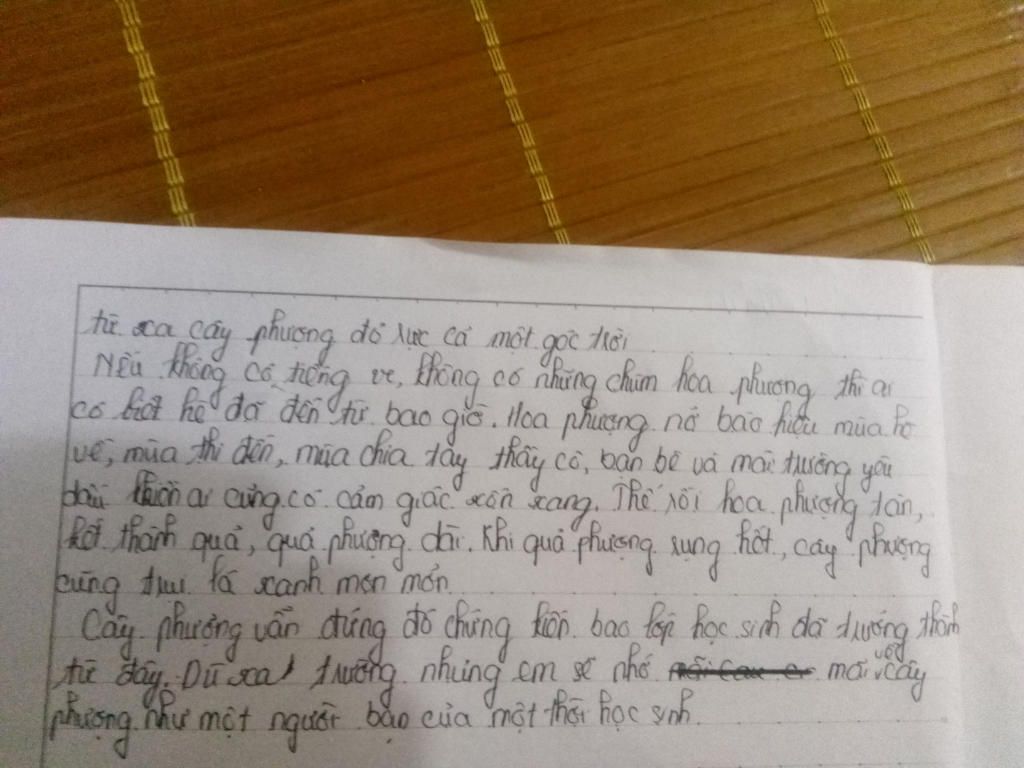 từ xa cây phượng đỏ rực cả một góc trời
Nếu không có tiếng ve, không có những chùm hoa phượng thì ai
có biết hè đã đến từ bao giờ. Hoa phượng nở báo hiệu mùa hè
về, mùa thi đến, mùa chia tay thầy cô, bạn bè và mái trường yêu
dấu khiến ai cũng có cảm giác xốn xang. Thế rồi hoa phượng tàn,
kết thành quả, quả phượng dài. Khi quả phượng rụng hết, cây phượng
cũng trụi lá xanh mơn mởn
Cây phượng vẫn đứng đó chứng kiến bao lớp học sinh đã trưởng thành
từ đây. Dù xa trường nhưng em sẽ nhớ mãi về cây
phượng như một người bạn của một thời học sinh.